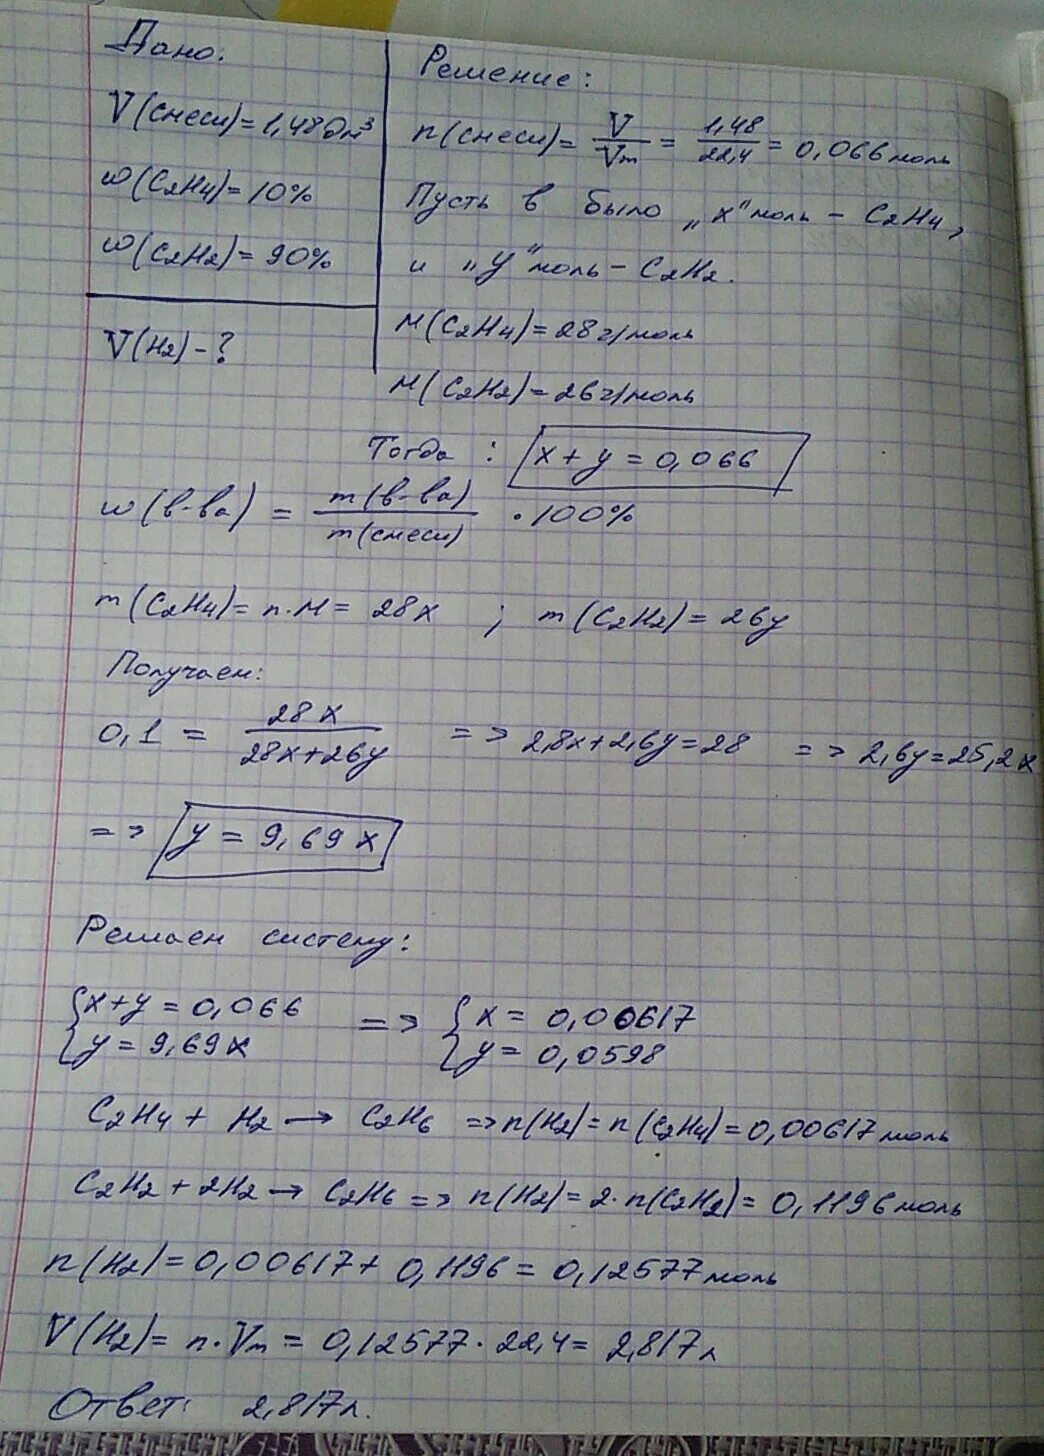 Дано:
V(смеси)=1,48дм³
w(C₂H₄)=10%
w(C₂H₂)=90%
V(H₂)-?
Решение:
n(смеси)= V/Vm = 1,48/22,4 = 0,066 моль
Пусть в было „x" моль - C₂H₄,
и „y" моль - C₂H₂.
M(C₂H₄)=28г/моль
M(C₂H₂)=26г/моль
Тогда : x+y=0,066
w(в-ва) = m(в-ва)/m(смеси) · 100%
m(C₂H₄)= n·M= 28x ; m(C₂H₂)= 26y
Получаем:
0,1 = 28x/28x+26y => 2,8x+2,6y=28 => 2,6y=25,2x
=> y = 9,69x
Решаем систему:
{x+y=0,066 => {x= 0,00617
{y=9,69x {y= 0,0598
C₂H₄ + H₂ → C₂H₆ => n(H₂)= n(C₂H₄)=0,00617моль
C₂H₂+2H₂→ C₂H₆ => n(H₂)=2·n(C₂H₂)= 0,1196моль
n(H₂)=0,00617+ 0,1196=0,12577моль
V(H₂)= n·Vm = 0,12577·22,4= 2,817л
Ответ: 2,817л.